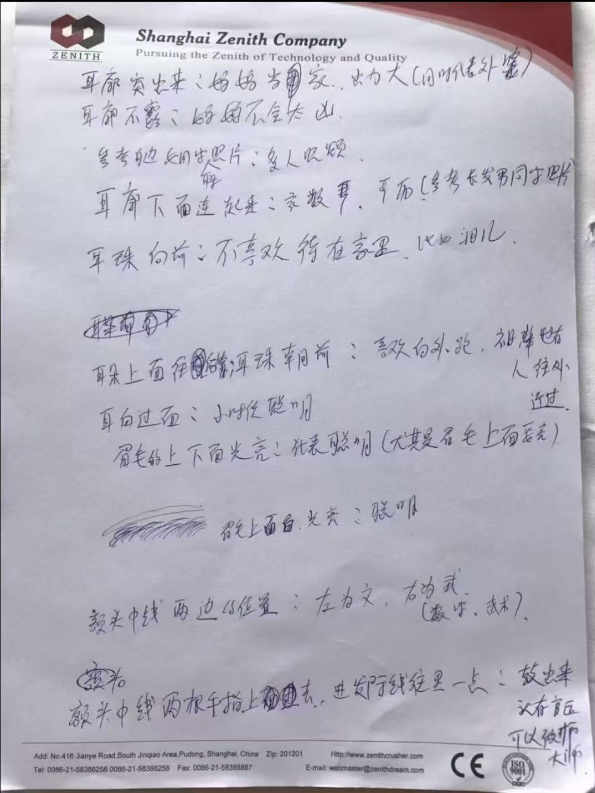 ZENITH
Shanghai Zenith Company
Pursuing the Zenith of Technology and Quality
耳廓突出来：妈妈当家，出力大（同时代表外
耳廓不露：妈妈不会太凶
参考 女同学照片：多人
耳廓下面连 来：平而（参考长发男同学照片
耳珠向前：不喜欢待在家里，比如
耳朵上面往 耳珠朝前：喜欢向外跑，祖辈也有
人往外
迁过
耳白过面：小时候聪明
眉毛的上下面光亮：代表聪明（尤其是眉毛上面要亮）
眉毛上面白，光亮：聪明
额头中线两边的位置：左为文，右为武
（数学，武术）
额头
额头中线两根手指上去，进发际线往里一点：鼓出来
可以做师
大师
Add: No.416 Jianye Road,South Jinqiao Area,Pudong, Shanghai, China Zip: 201201 Http://www.zenithcrusher.com
Tel: 0086-21-58386256 0086-21-58386258 Fax: 0086-21-58385887 E-mail: webmaster@zenithdream.com
CE
ISO
9001